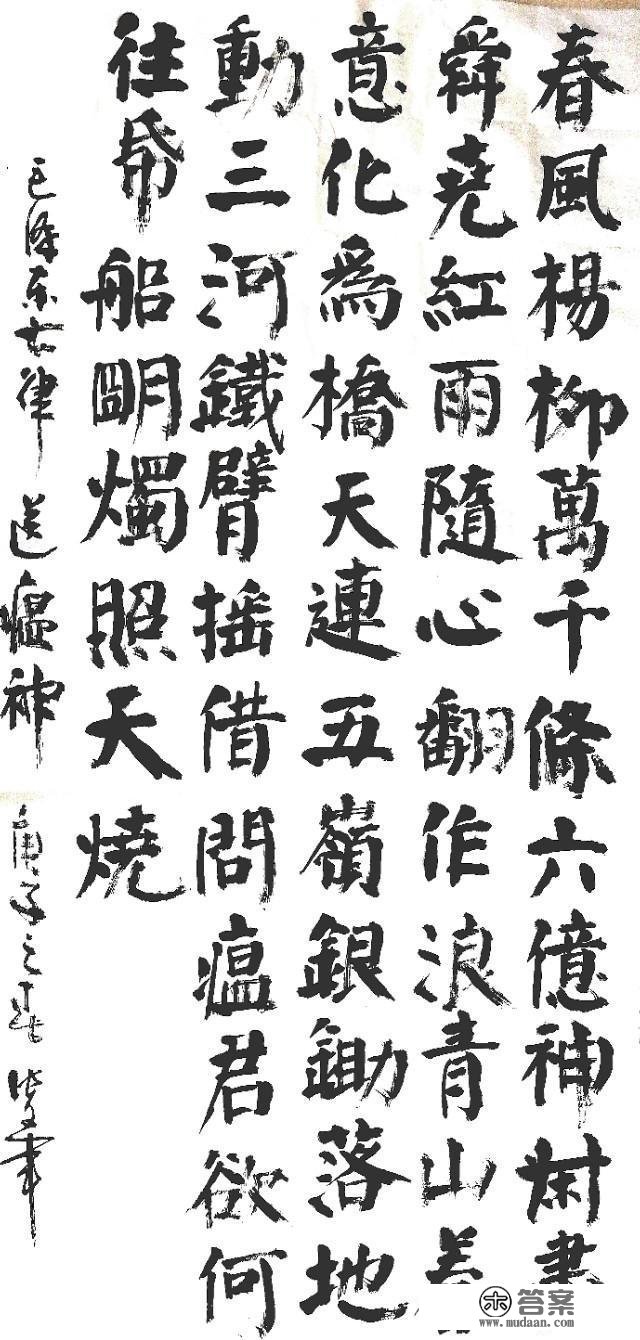 春風楊柳萬千條六億神州盡
舜堯紅雨隨心翻作浪青山着
意化為橋天連五嶺銀鋤落地
動三河鐵臂摇借問瘟君欲何
往帋船明燭照天燒
毛泽东七律 送瘟神 庚子之春
答案
www.mudaan.com